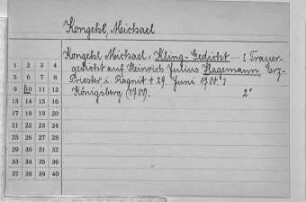 Kongehl, Michael
Kongehl, Michael: Kling-Gedicht ... [Trauer-
gedicht auf Heinrich Julius Hagemann Erz-
Priester i. Ragnit + 29. Juni
Königsberg 2°
1 2 3 4
5 6 7 8
9 10 11 12
13 14 15 16
17 18 19 20
21 22 23 24
25 26 27 28
29 30 31 32
33 34 35 36
37 38 39 40